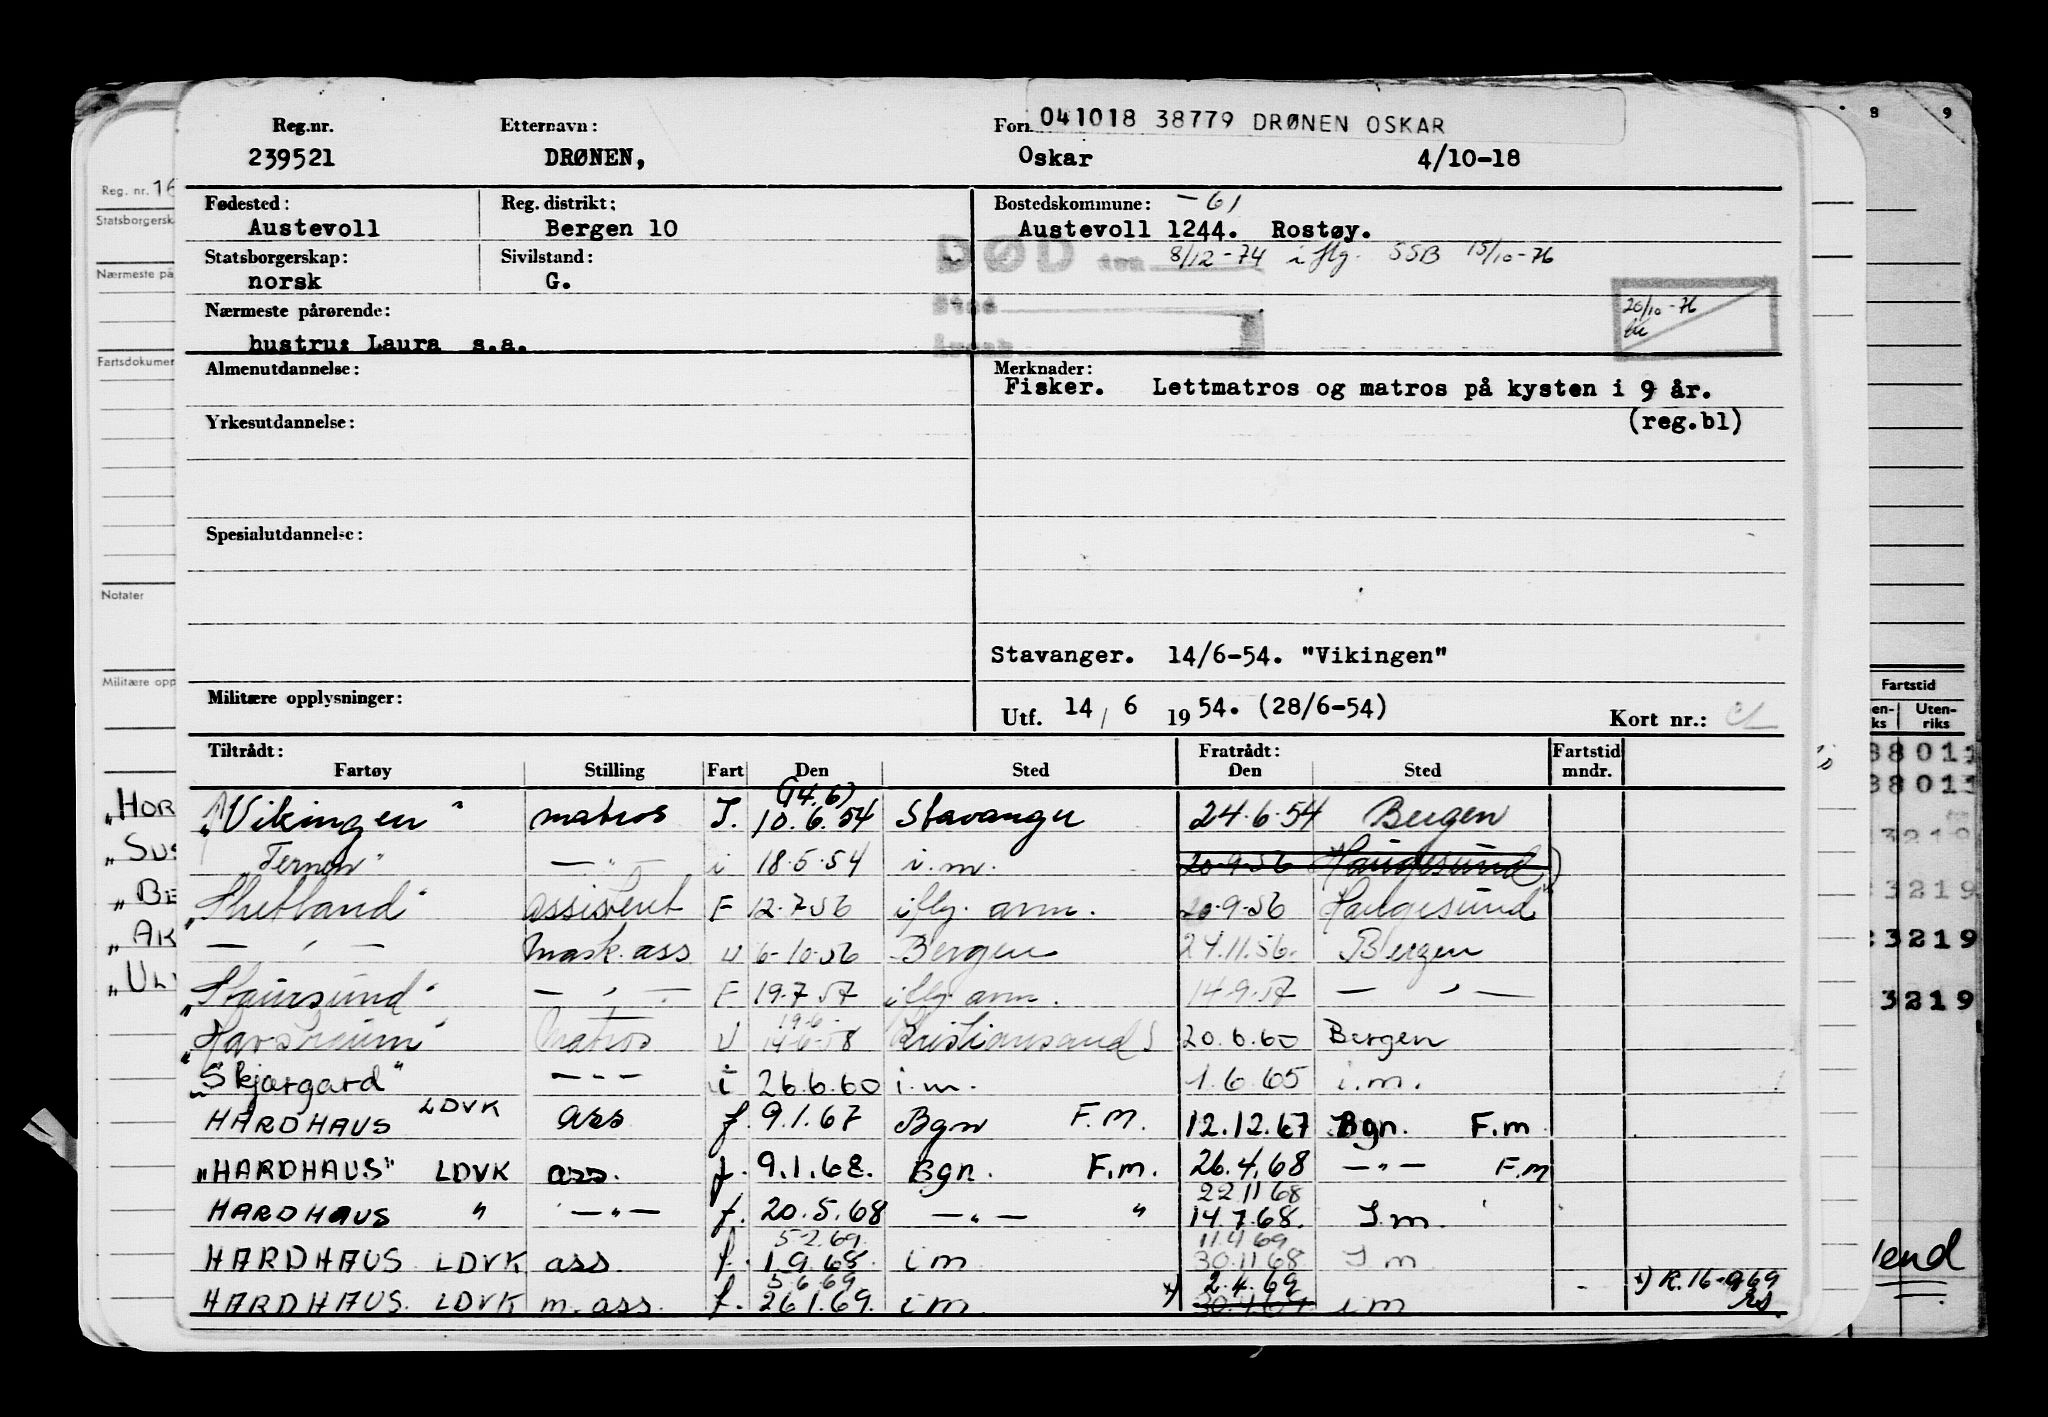 041018 38779 DRØNEN OSKAR
Reg.nr. Etternavn: Forn
239521 DRØNEN, Oskar 4/10-18
Fødested: Reg. distrikt: Bostedskommune: -61
Austevoll Bergen 10 Austevoll 1244. Rostøy.
Statsborgerskap: Sivilstand: DØD den 8/12-74 i flg. SSB 15/10-76
norsk G.
Nærmeste pårørende: Sted 20/10-76
hustru: Laura s.a.
Almenutdannelse: Merknader:
Fisker. Lettmatros og matros på kysten i 9 år.
(reg.bl)
Yrkesutdannelse:
Spesialutdannelse:
Stavanger. 14/6-54. "Vikingen"
Militære opplysninger: Utf. 14/6 1954. (28/6-54) Kort nr.:
Tiltrådt: Fratrådt: Fartstid
Fartøy Stilling Fart Den Sted Den Sted mndr.
(14.6)
"Vikingen" matros I. 10.6.54 Stavanger 24.6.54 Bergen
"Ternen" — " — i 18.5.54 i.m. 20.9.56 Haugesund)
"Shetland" assistent F 12.7.56 iflg. anm. 20.9.56 Haugesund
— " — mask.ass U 6-10-56 Bergen 24.11.56. Bergen
"Staursund" — " — F 19.7.57 iflg. anm. 14.9.57 — " —
19.6
"Havstraum" Matros U 14.6.58 Kristiansand S 20.6.60 Bergen
"Skjærgard" — - - i 26.6.60 i.m. 1.6.65 i.m.
HARDHAUS LDVK ass f. 9.1.67 Bgn F.M. 12.12.67 Bgn. F.m
"HARDHAUS" LDVK ass. f. 9.1.68. Bgn. F.m. 26.4.68 — " — F.m
22.11.68
HARDHAUS " — " — f. 20.5.68 — " — " 14.7.68. I.m.
5.2.69. 11.4.69
HARDHAUS LDVK ass. f. 1.9.68. i m 30.11.68 I m
5.6.69 2.4.69
HARDHAUS. LDVK m. ass. f. 26.1.69. i m x) i m x) R.16-9-69
Reg. nr. 16
Statsborgersk
Nærmeste på
Fartsdokumen
Notater
Militære opp
"HOR
"SUS
"BE
"AK
"ULV
8 9
Fartstid
en- Uten-
ks riks
38011
38011
3219
3219
3219
3219
Vend